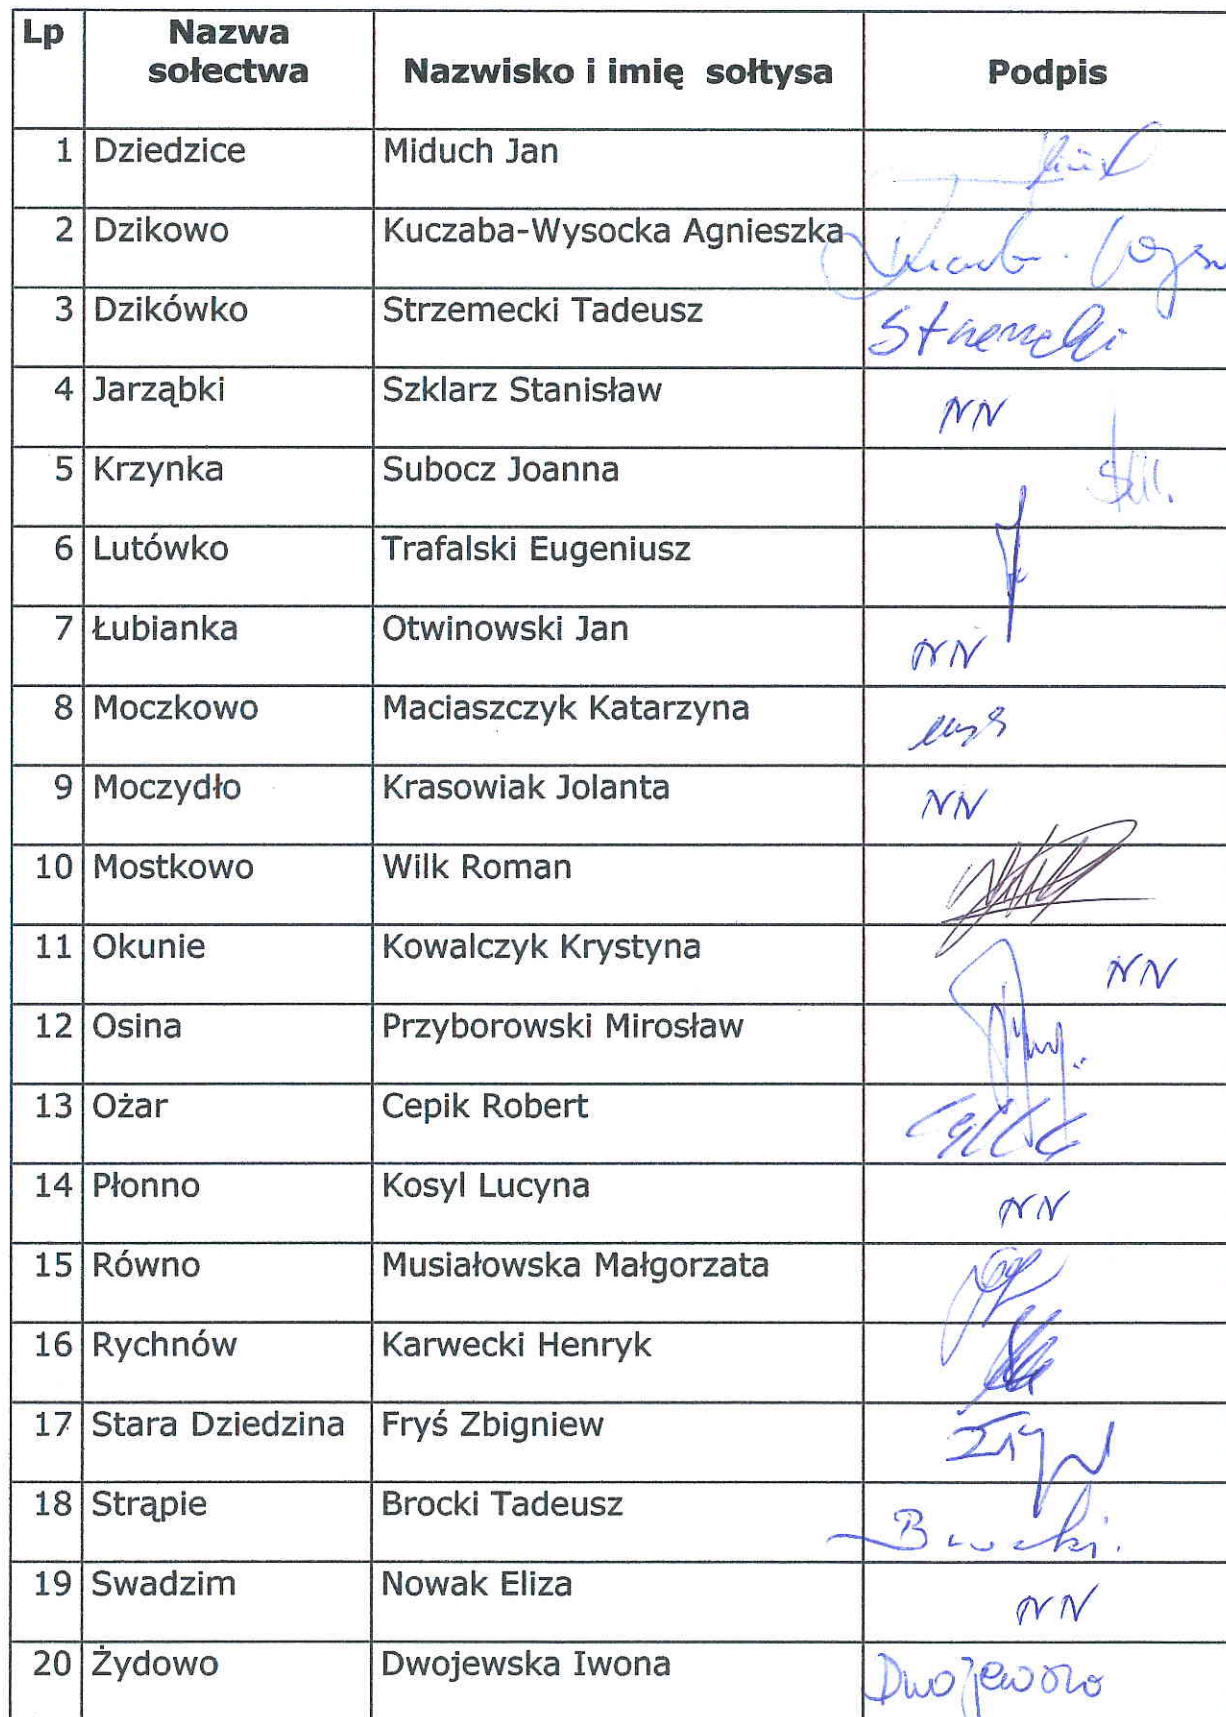 Lp Nazwa sołectwa Nazwisko i imię sołtysa Podpis
1 Dziedzice Miduch Jan
2 Dzikowo Kuczaba-Wysocka Agnieszka
3 Dzikówko Strzemecki Tadeusz Strzemecki
4 Jarząbki Szklarz Stanisław NN
5 Krzynka Subocz Joanna
6 Lutówko Trafalski Eugeniusz
7 Łubianka Otwinowski Jan NN
8 Moczkowo Maciaszczyk Katarzyna
9 Moczydło Krasowiak Jolanta NN
10 Mostkowo Wilk Roman
11 Okunie Kowalczyk Krystyna NN
12 Osina Przyborowski Mirosław
13 Ożar Cepik Robert
14 Płonno Kosyl Lucyna NN
15 Równo Musiałowska Małgorzata
16 Rychnów Karwecki Henryk
17 Stara Dziedzina Fryś Zbigniew
18 Strąpie Brocki Tadeusz Brocki
19 Swadzim Nowak Eliza NN
20 Żydowo Dwojewska Iwona